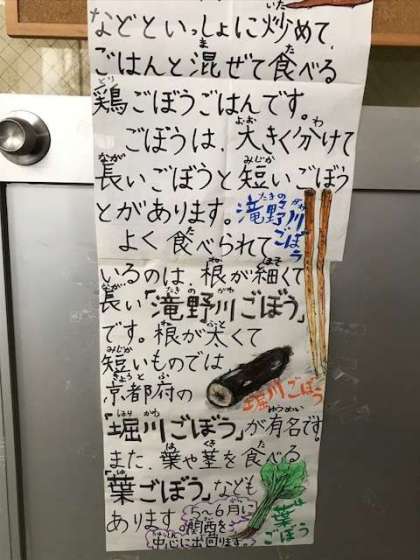 などといっしょに炒めて、
ごはんと混ぜて食べる
鶏ごぼうごはんです。
ごぼうは、大きく分けて
長いごぼうと短いごぼう
とがあります。
滝野川ごぼう
よく食べられて
いるのは、根が細くて
長い「滝野川ごぼう」
です。根が太くて
短いものでは
京都府の
堀川ごぼう
「堀川ごぼう」が有名です。
また、葉や茎を食べる
「葉ごぼう」なども
あります。
5〜6月に
関西を
中心に出回ります。
葉ごぼう